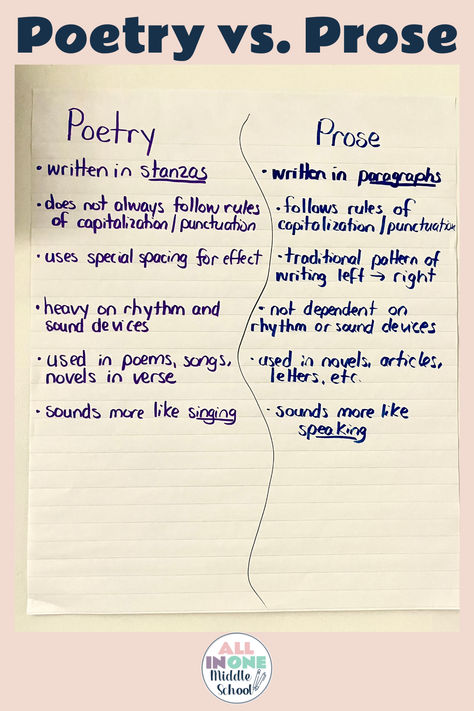 Poetry vs. Prose
Poetry
• written in stanzas
• does not always follow rules
of capitalization/punctuation
• uses special spacing for effect
• heavy on rhythm and
sound devices
• used in poems, songs,
novels in verse
• sounds more like singing
Prose
• written in paragraphs
• follows rules of
capitalization/punctuation
• traditional pattern of
writing left → right
• not dependent on
rhythm or sound devices
• used in novels, articles,
letters, etc.
• sounds more like
speaking
ALL
IN ONE
Middle
School